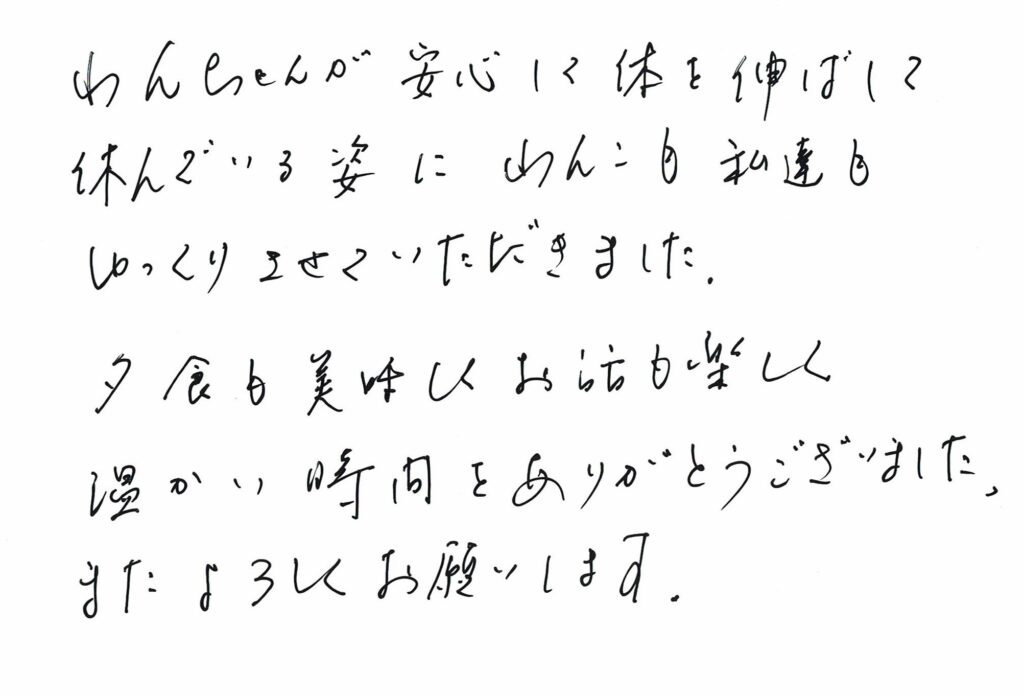 わんちゃんが安心して体を伸ばして
休んでいる姿にわんこも私達も
ゆっくりさせていただきました.
夕食も美味しくお話も楽しく
温かい時間をありがとうございました、
またよろしくお願いします.